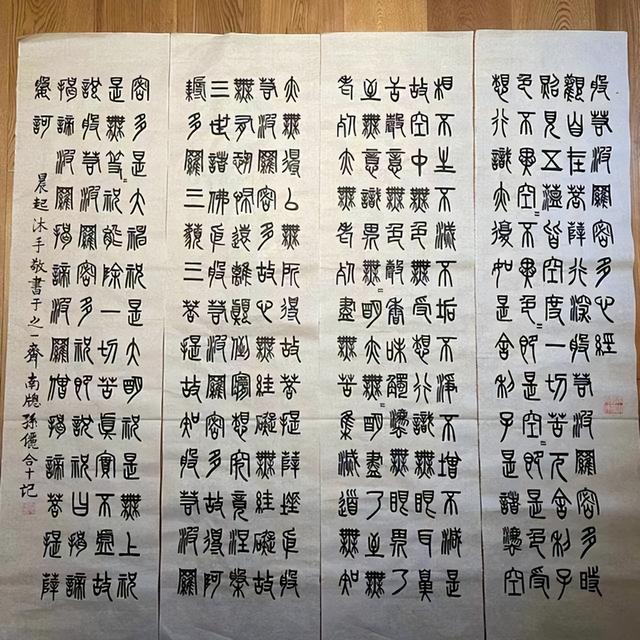 般若波羅密多心經
觀自在菩薩行深般若波羅密多時
照見五蘊皆空度一切苦厄舍利子
色不異空=不異色=即是空=即是色受
想行識亦復如是舍利子是諸法空
相不生不滅不垢不淨不增不減是
故空中無色無受想行識無眼耳鼻
舌意無色香味觸法無眼界乃
至無意識界無=明亦無=明盡乃至無
老死亦無老死盡無苦集滅道無知
亦無得以無所得故菩提薩埵依般
若波羅密多故心無罣礙無罣礙故
無有恐怖遠離顛倒夢想究竟涅槃
三世諸佛依般若波羅密多故得阿
耨多羅三藐三菩提故知般若波羅
密多是大神咒是大明咒是無上咒
是無等=咒能除一切苦真實不虛故
說般若波羅密多咒即說咒曰揭諦
揭諦波羅揭諦波羅僧揭諦菩提薩
婆訶
晨起沐手敬書于之一齋南牕孫儷合十記